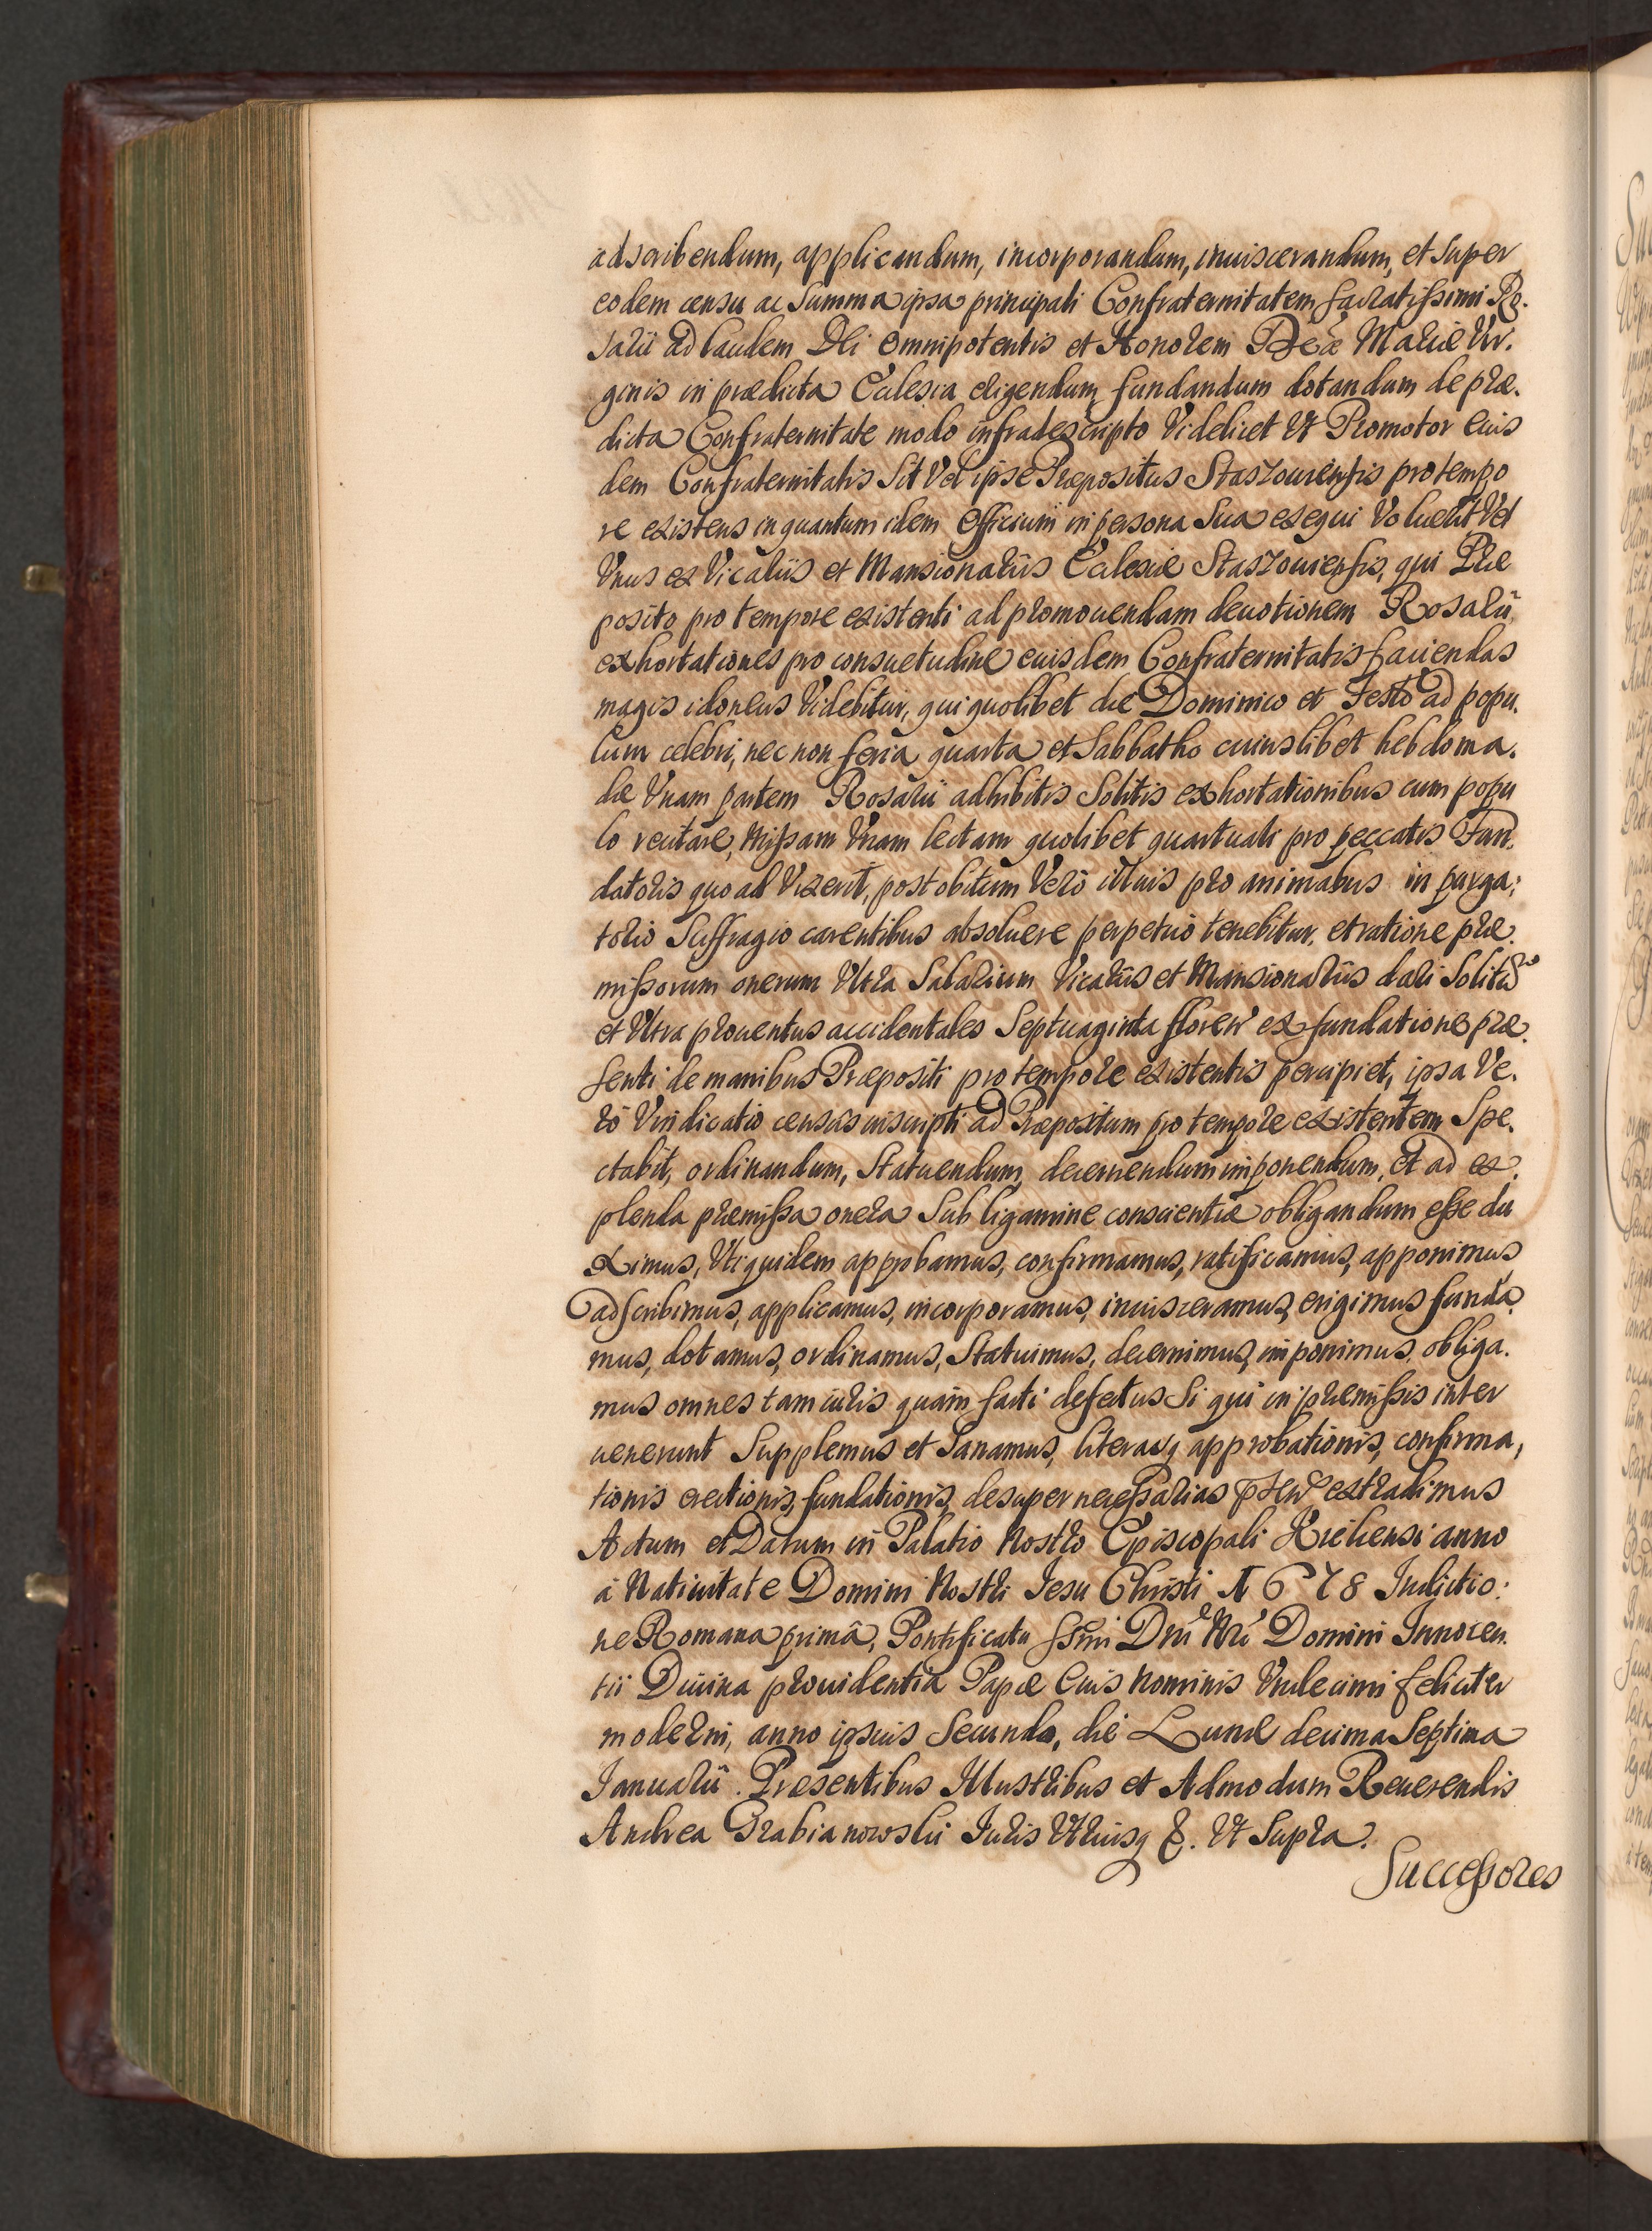 adscribendum, applicandum, incorporandum, inuiscerandum, et super
eodem censu ac Summa ipsa principali Confraternitatem sacratissimi Ro.
sarii ad laudem Dei Omnipotentis et Honorem Btæ Mariæ Vir.
ginis in prædicta Ecclesia erigendum, fundandum dotandum de præ.
dicta Confraternitate modo infradescripto Videlicet Vt Promotor eius
dem Confraternitatis Sit Vel ipse Præpositus Staszouiensis pro tempo
re existens in quantum idem Officium in persona Sua exequi Voluerit Vel
Vnus ex Vicariis et Mansionariis Ecclesiæ Staszouiensis, qui Præ
posito pro tempore existenti ad promouendam deuotionem Rosarii,
exhortationes pro consuetudine eiusdem Confraternitatis faciendas
magis idoneus Videbitur, qui quolibet die Dominico et Festo ad popu.
lum celebri, nec non feria quarta et Sabbatho cuiuslibet hebdoma.
dæ Vnam partem Rosarii adhibitis Solitis exhortationibus cum popu
lo recitare, Missam Vnam lectam quolibet quartuali pro peccatis Fun.
datoris quo ad Vixerit, post obitum Verò illius pro animabus in purga:
torio Suffragio carentibus absoluere perpetuò tenebitur, et ratione præ.
missorum onerum Vltra Salarium Vicariis et Mansionariis dari Solitũ
et Vltra prouentus accidentales Septuaginta floren' ex fundatione præ.
senti de manibus Præpositi pro tempore existentis percipiet, ipsa Ve.
rò Vindicatio censùs inscripti ad Præpositum pro tempore existentem Spe.
ctabit, ordinandum, Statuendum, decernendum imponendum, et ad ex.
plenda præmissa onera Sub ligamine conscientiæ obligandum esse du
ximus, Vti quidem approbamus, confirmamus, ratificamus, apponimus
adscribimus, applicamus, incorporamus, inuisceramus, erigimus funda.
mus, dotamus, ordinamus, Statuimus, decernimus, imponimus, obliga.
mus omnes tam iuris quàm facti defectus Si qui in præmissis inter
uenerunt Supplemus et Sanamus, literasq approbationis, confirma,
tionis erectionis, fundationis, desuper necessarias extradimus
Actum et Datum in Palatio Nostro Episcopali Kielcensi anno
à Natiuitate Domini Nostri Iesu Christi 1678 Indictio:
ne Romana primâ, Pontificatu Ssmi Dni Nri Domini Innocen.
tii Diuina prouidentia Papæ Eius Nominis Vndecimi feliciter
moderni, anno ipsius Secundo, die Lunæ decima Septima
Ianuarii. Præsentibus Illustribus et Admodum Reuerendis
Andrea Grabianowski Iuris Vtriusq &. Vt Supra.
Successores